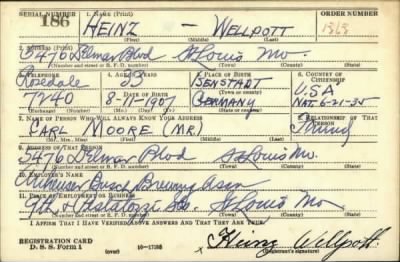 SERIAL NUMBER 1. NAME (Print) ORDER NUMBER
186 HEINZ — WELLPOTT 1368
(First) (Middle) (Last)
2. ADDRESS (Print)
5476 Delmar Blvd St Louis Mo.
(Number and street or R. F. D. number) (Town) (County) (State)
3. TELEPHONE 4. AGE IN YEARS 5. PLACE OF BIRTH 6. COUNTRY OF CITIZENSHIP
Rosedale 33 U.S.A.
DATE OF BIRTH (Town or county)
7240 8-11-1907 Germany NAT. 6-21-35
(Exchange) (Number) (Mo.) (Day) (Yr.) (State or country)
7. NAME OF PERSON WHO WILL ALWAYS KNOW YOUR ADDRESS 8. RELATIONSHIP OF THAT PERSON
CARL MOORE (MR.) Friend
(Mr., Mrs., Miss) (First) (Middle) (Last)
9. ADDRESS OF THAT PERSON
5476 Delmar Blvd St Louis Mo.
(Number and street or R. F. D. number) (Town) (County) (State)
10. EMPLOYER'S NAME
Anheuser Busch Brewing Assn
11. PLACE OF EMPLOYMENT OR BUSINESS
9th & Pestalozzi Sts. St Louis Mo
(Number and street or R. F. D. number) (Town) (County) (State)
I AFFIRM THAT I HAVE VERIFIED ABOVE ANSWERS AND THAT THEY ARE TRUE.
REGISTRATION CARD
D. S. S. Form 1 (over) 16—17105 Heinz Wellpott
(Registrant's signature)